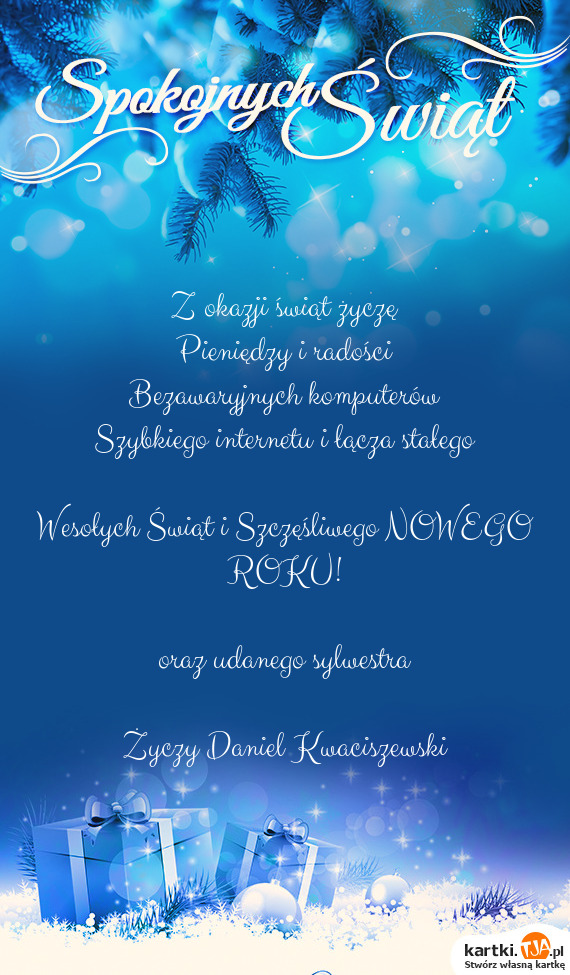 Spokojnych Świąt
Z okazji świąt życzę
Pieniędzy i radości
Bezawaryjnych komputerów
Szybkiego internetu i łącza stałego
Wesołych Świąt i Szczęśliwego NOWEGO
ROKU!
oraz udanego sylwestra
Życzy Daniel Kwaciszewski
kartki.TJA.pl
Stwórz własną kartkę